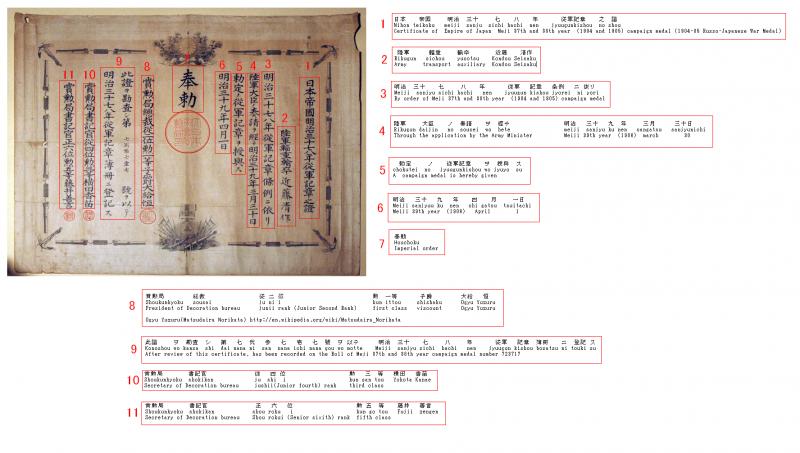 1
日本帝國明治三十七八年從軍記章之證
2
陸軍輜重輸卒 近藤清作
3
明治三十七八年從軍記章條例ニ依リ
4
陸軍大臣ノ奏請ヲ經テ明治三十九年三月三十日
5
勅定ノ從軍記章ヲ授與ス
6
明治三十九年四月一日
7
奉勅
8
賞勲局總裁從二位勲一等子爵大給恒
9
此證ヲ勘査シ第
號ヲ以テ
明治三十七八年從軍記章簿冊ニ登記ス
10
賞勲局書記官從四位勲三等横田香苗
11
賞勲局書記官正六位勲五等藤井善言
1
日本 帝國 明治 三十 七 八 年 従軍記章 之 證
Nihon teikoku meiji sanju sichi hachi nen jyuugunkishou no shou
Certificate of Empire of Japan Meji 37th and 38th year (1904 and 1905) campaign medal (1904-05 Russo-Japanese War Medal)
2
陸軍 輜重 輸卒 近藤 清作
Rikugun sichou yusotsu Kondou Seisaku
Army transport auxiliary Kondou Seisaku
3
明治 三十 七 八 年 従軍 記章 条例 ニ 依リ
Meiji sanjyu sichi hachi nen jyuugun kishou jyorei ni yori
By order of Meji 37th and 38th year (1904 and 1905) campaign medal
4
陸軍 大臣 ノ 奏請 ヲ 経テ 明治 三十 九 年 三月 三十日
Rikugun daijin no sousei wo hete meiji sanjyu ku nen sangatsu sanjyunichi
Through the application by the Army Minister Meiji 39th year (1906) march 30
5
勅定 ノ 従軍記章 ヲ 授與 ス
chokutei no jyuugunkishou wo jyuyo su
A campaign medal is hereby given
6
明治 三十 九 年 四月 一日
Meiji sanjyuu ku nen shi gatsu tsuitachi
Meiji 39th year (1906) April 1
7
奉勅
Houchoku
Imperial order
8
賞勲局 総裁 従 二 位 勲 一等 子爵 大給 恒
Shoukunkyoku sousai ju ni i kun ittou shishaku Ogyu Yuzuru
President of Decoration bureau junii rank (Junior Second Rank) first class viscount Ogyu Yuzuru
Ogyu Yuzuru(Matsudaira Norikata) http://en.wikipedia.org/wiki/Matsudaira_Norikata
9
此證 ヲ 勘査 シ 第 七 弐 参 七 壱 七 號 ヲ 以テ 明治 三十 七 八 年 従軍 記章 簿冊 ニ 登記 ス
Konoshou wo kansa shi dai nana ni san nana ichi nana gou wo motte Meiji sanjyu sichi hachi nen jyuugun kishou bosatsu ni touki su
After review of this certificate, has been recorded on the Roll of Meji 37th and 38th year campaign medal number 723717
10
賞勲局 書記官 従 四 位 勲 三 等 横田 香苗
Shoukunkyoku shokikan ju shi i kun san tou Yokota Kanae
Secretary of Decoration bureau jushii(Junior fourth) rank third class
11
賞勲局 書記官 正 六 位 勲 五 等 藤井 善言
Shoukunkyoku shokikan shou roku i kun go tou Fujii zengen
Secretary of Decoration bureau Shou rokui (Senior sixith) rank fifth class